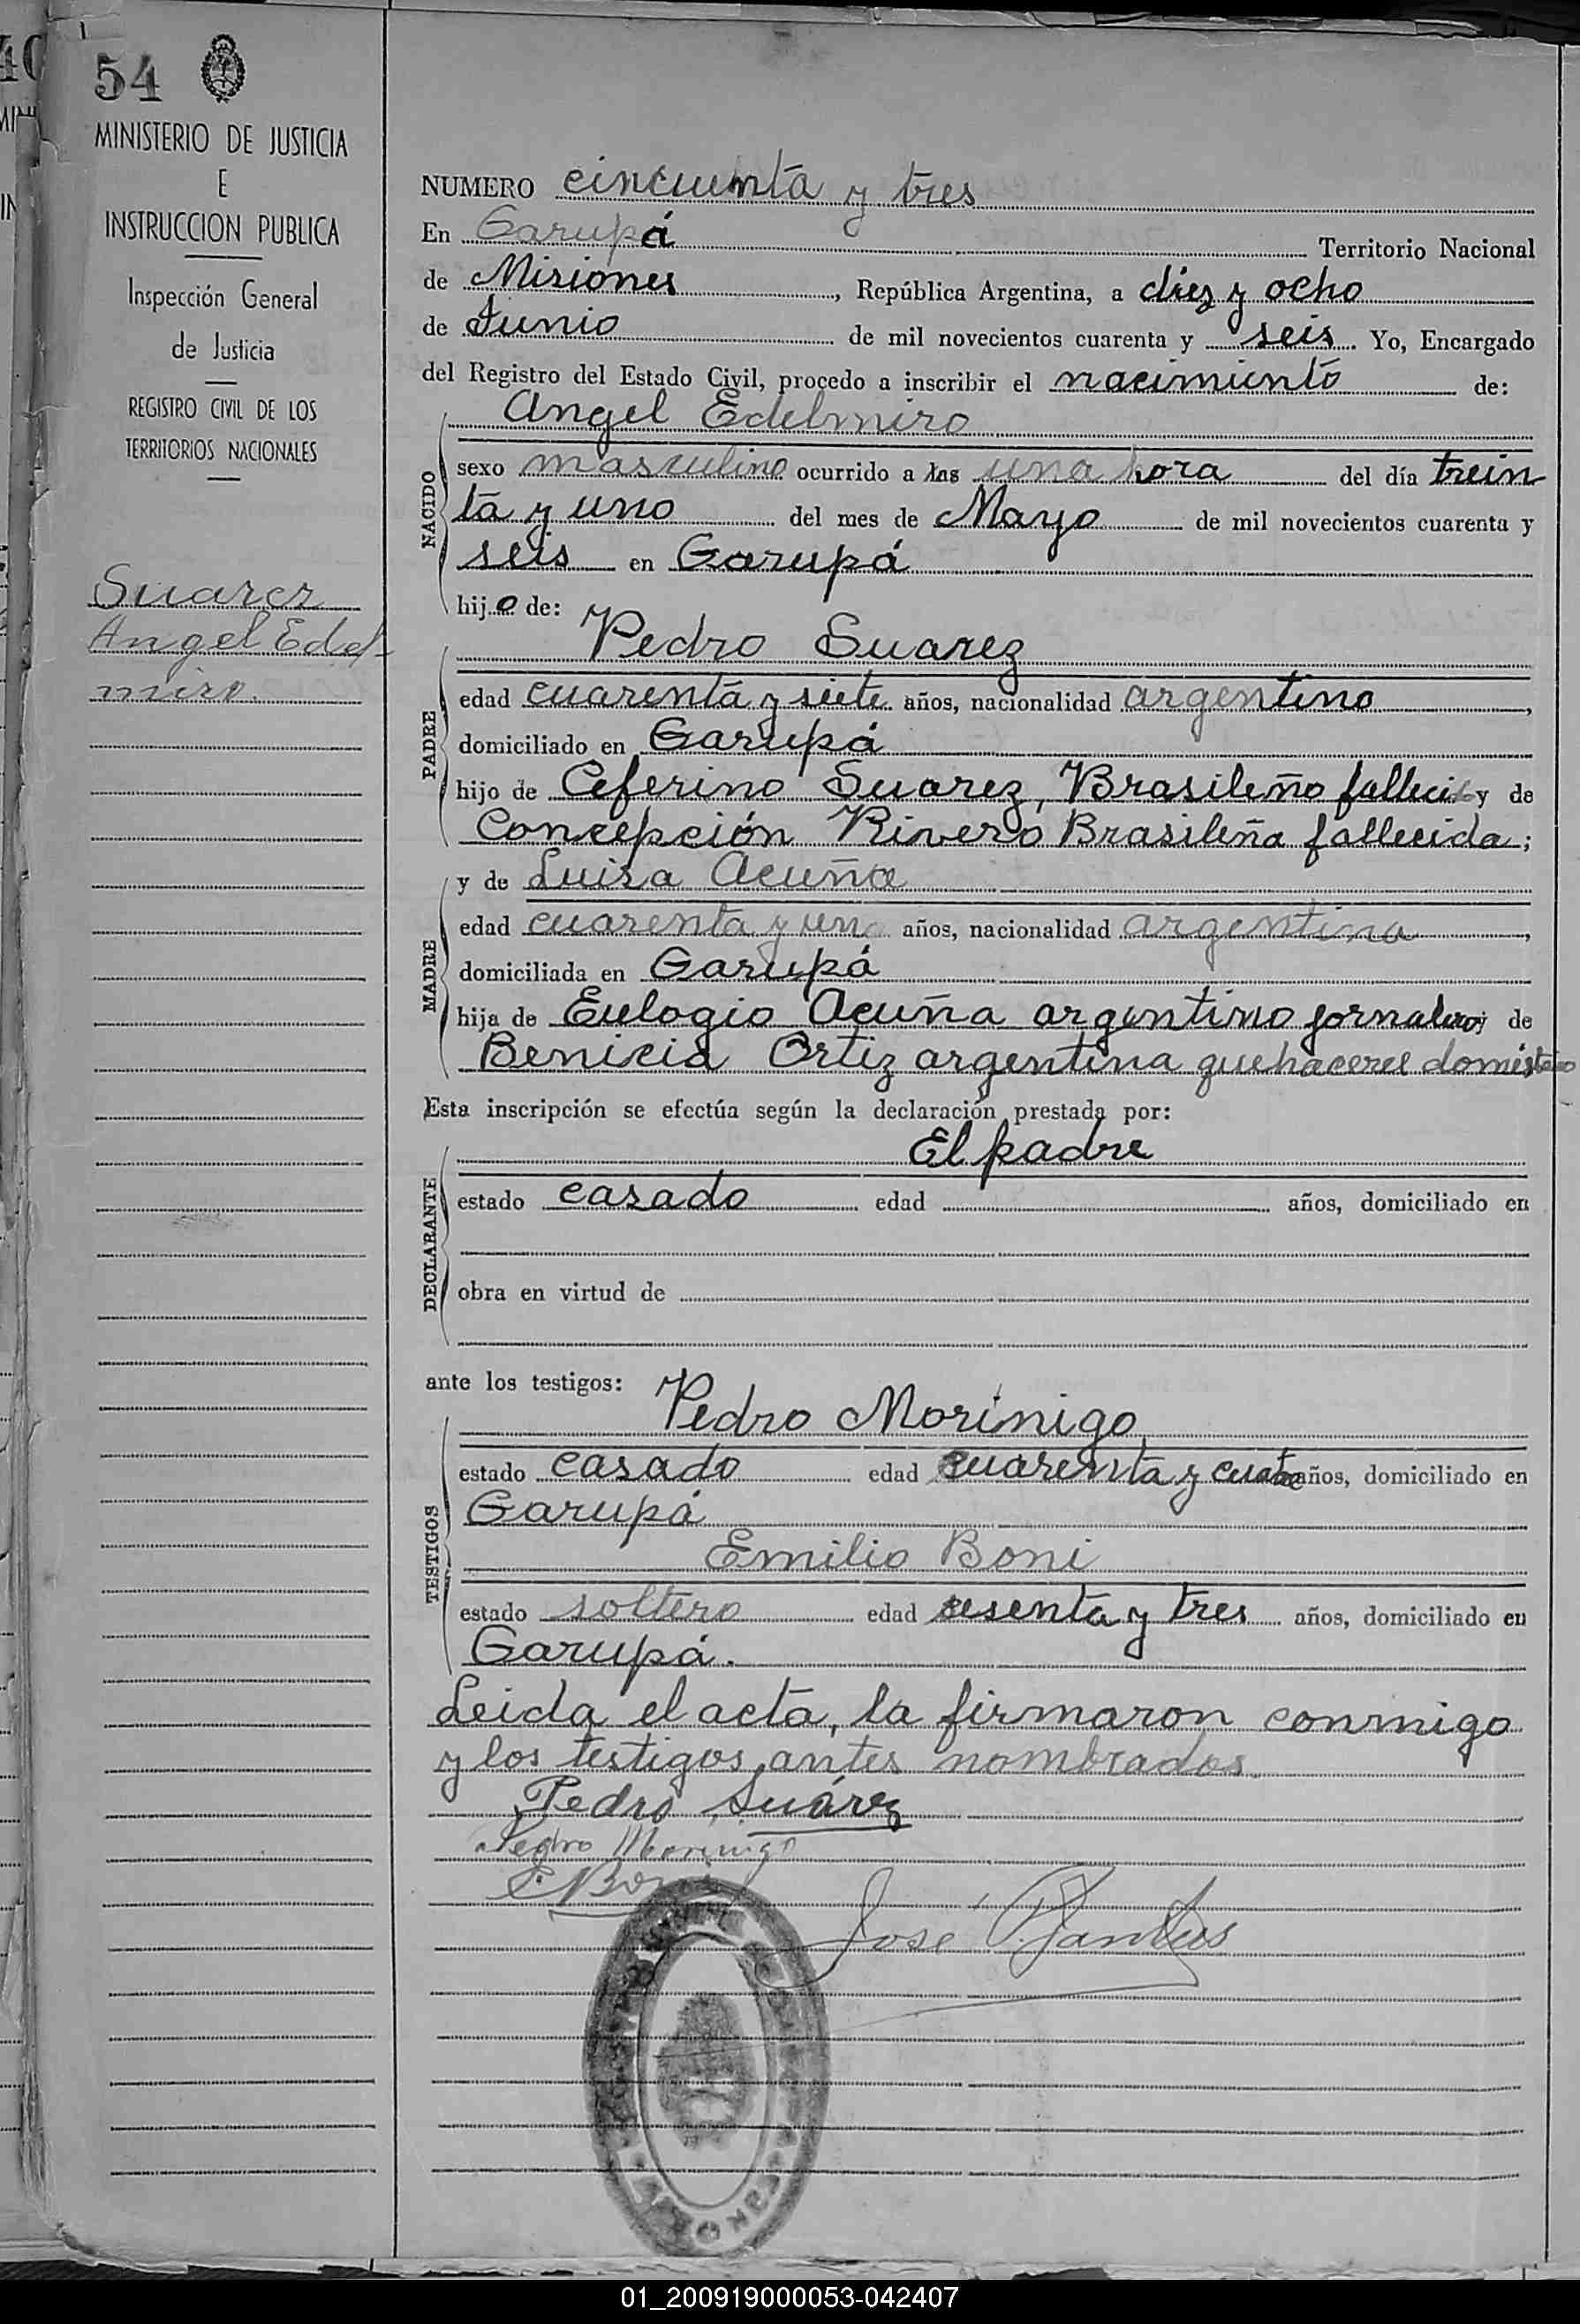 54
MINISTERIO DE JUSTICIA
E
INSTRUCCION PUBLICA
Inspección General
de Justicia
REGISTRO CIVIL DE LOS
TERRITORIOS NACIONALES
Suarez
Angel Edel-
miro.
NUMERO cincuenta y tres
En Garupá Territorio Nacional
de Misiones, República Argentina, a diez y ocho
de Junio de mil novecientos cuarenta y seis. Yo, Encargado
del Registro del Estado Civil, procedo a inscribir el nacimiento de:
Angel Edelmiro
NACIDO
sexo masculino ocurrido a las una hora del día trein
ta y uno del mes de Mayo de mil novecientos cuarenta y
seis en Garupá
hijo de:
Pedro Suarez
PADRE
edad cuarenta y siete años, nacionalidad argentino,
domiciliado en Garupá
hijo de Ceferino Suarez, Brasileño fallecido y de
Concepción Rivero Brasileña fallecida;
y de Luisa Acuña
MADRE
edad cuarenta y uno años, nacionalidad argentina,
domiciliada en Garupá
hija de Eulogio Acuña argentino jornalero y de
Benicia Ortiz argentina quehaceres doméstico
Esta inscripción se efectúa según la declaración prestada por:
El padre
DECLARANTE
estado casado edad años, domiciliado en
obra en virtud de
ante los testigos:
Pedro Morinigo
TESTIGOS
estado casado edad cuarenta y cuatro años, domiciliado en
Garupá
Emilio Boni
estado soltero edad sesenta y tres años, domiciliado en
Garupá.
Leida el acta, la firmaron conmigo
y los testigos antes nombrados.
Pedro Suárez
Pedro Morinigo
E. Boni
José
01_200919000053-042407